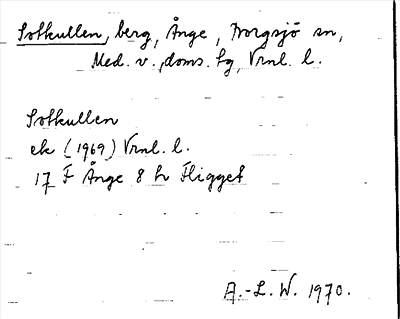 Sotkullen, berg, Ånge, Borgsjö sn,
Med. v. doms. sg, Vrnl. l.
Sotkullen
ek (1969) Vrnl. l.
17 F Ånge 8 h Fligget
A.-L. W. 1970.